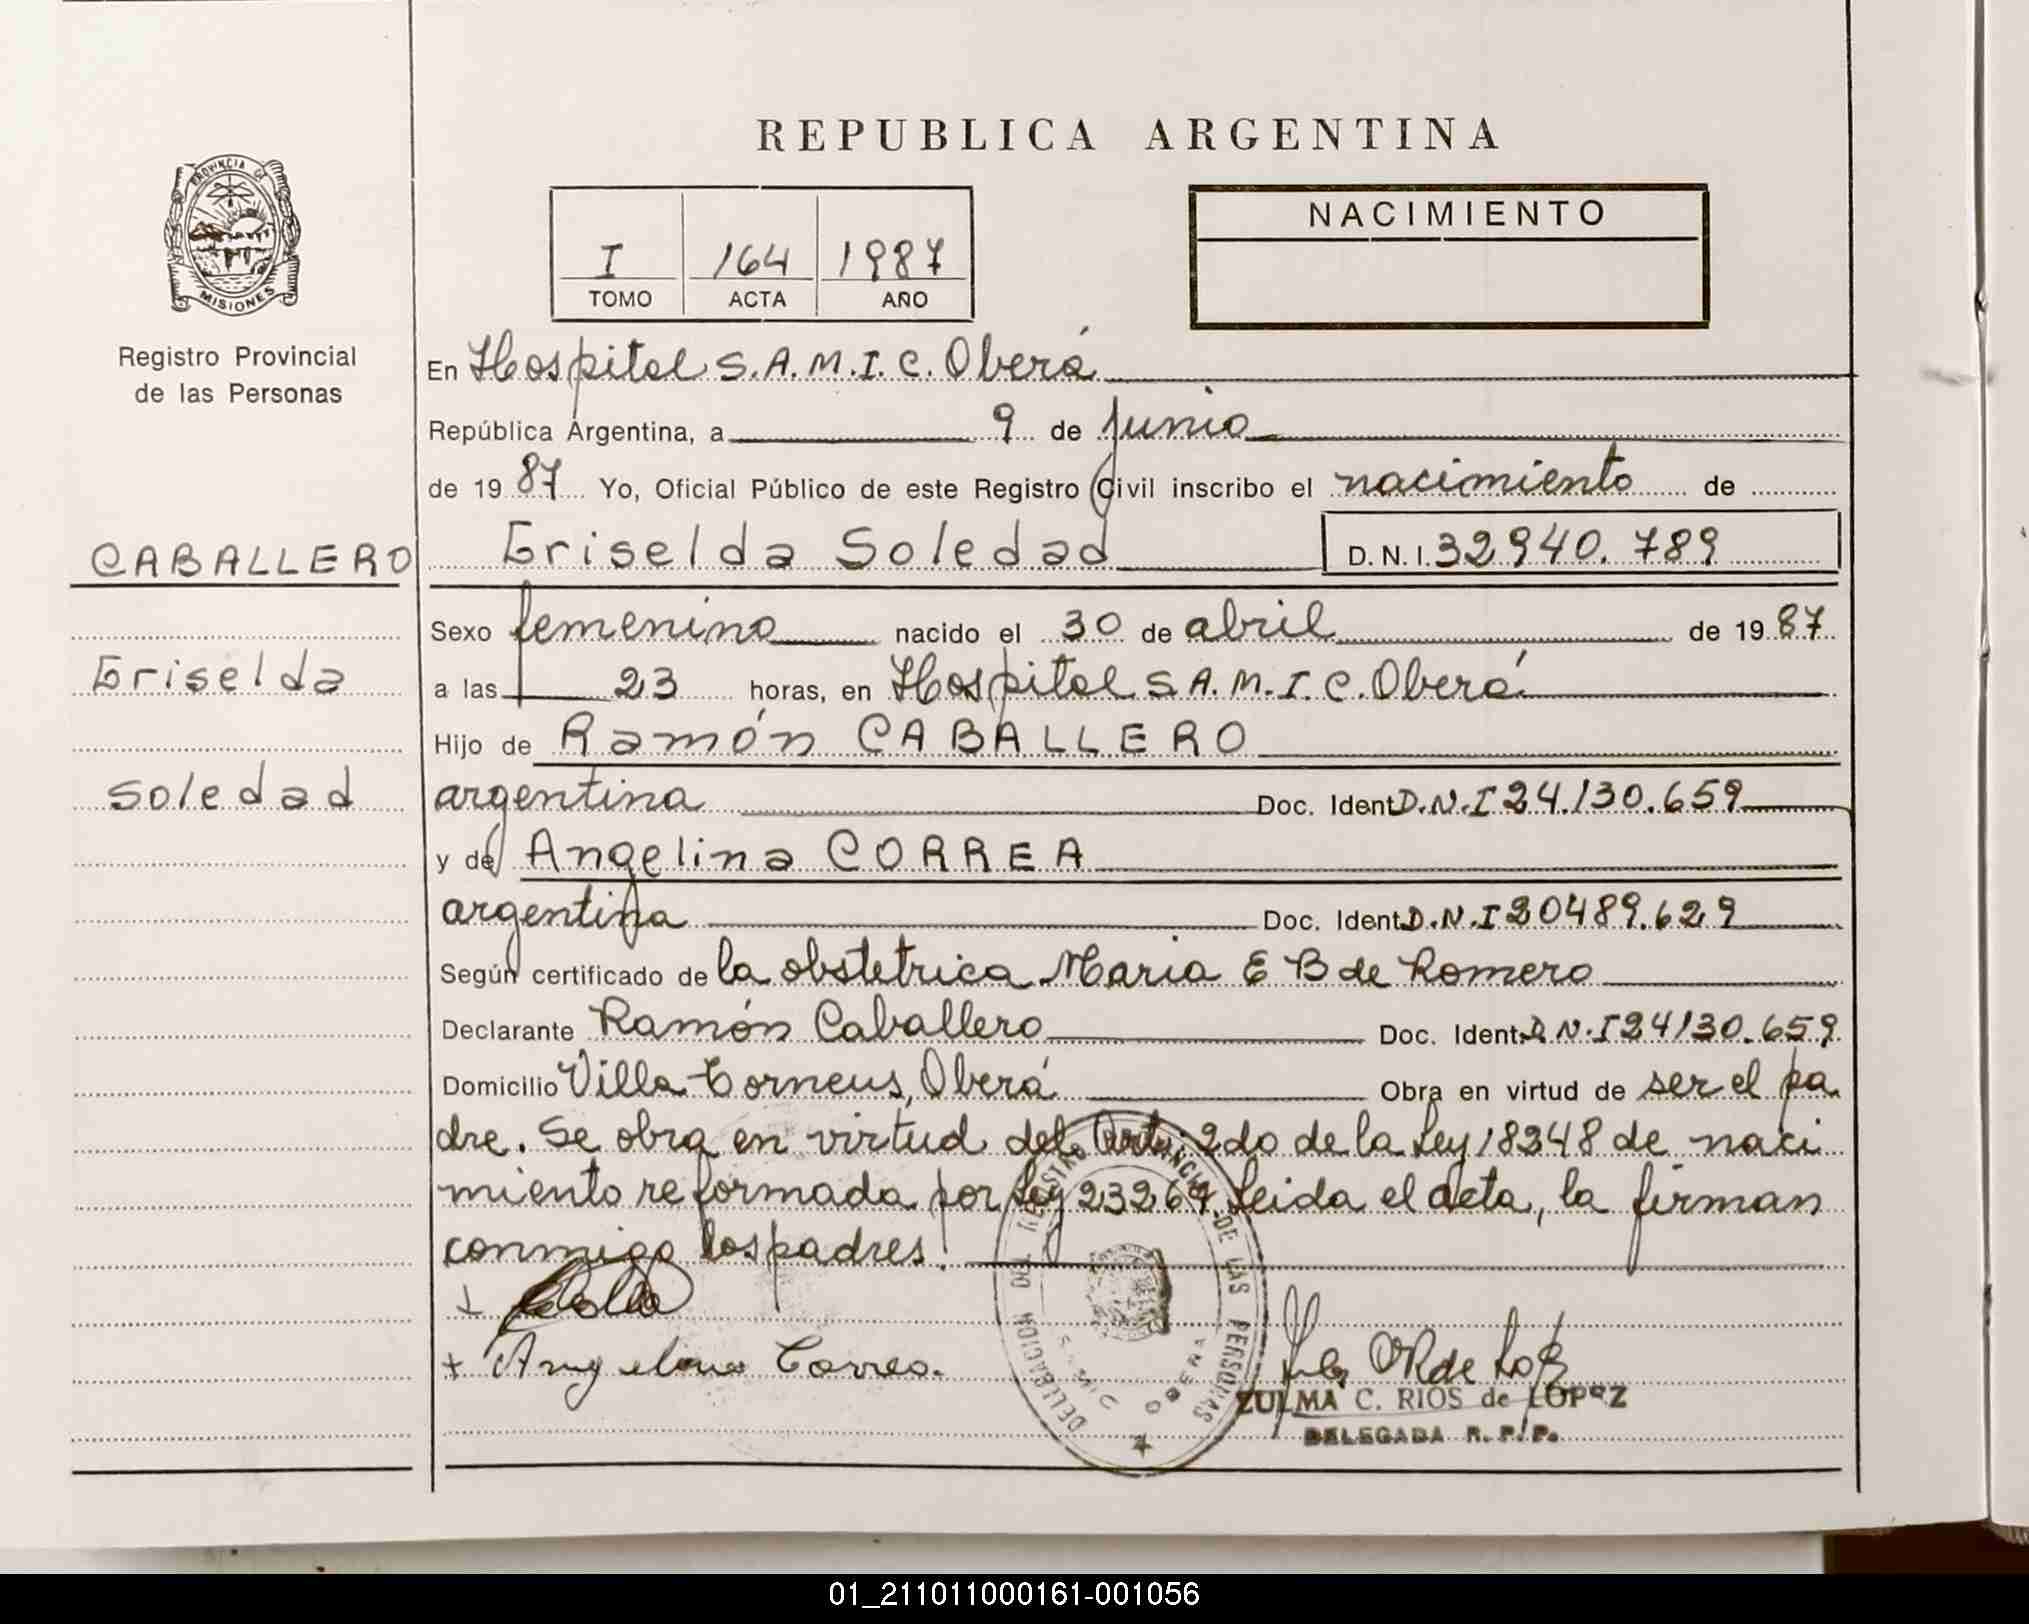 REPUBLICA ARGENTINA
PROVINCIA DE
MISIONES
Registro Provincial
de las Personas
I 164 1987
TOMO ACTA AÑO
NACIMIENTO
En Hospital S.A.M.I.C. Oberá
República Argentina, a 9 de junio
de 1987 Yo, Oficial Público de este Registro Civil inscribo el nacimiento de
CABALLERO
Griselda Soledad D.N.I. 32940.789
Sexo femenino nacido el 30 de abril de 1987
Griselda
a las 23 horas, en Hospital S A.M.I.C. Oberá
Hijo de Ramón CABALLERO
Soledad
argentina Doc. Ident D.N.I 24.130.659
y de Angelina CORREA
argentina Doc. Ident D.N.I 20489.629
Según certificado de la obstetrica Maria E B de Romero
Declarante Ramón Caballero Doc. Ident. D.N.I 24130.659
Domicilio Villa Oberá Obra en virtud de ser el pa
dre. Se obra en virtud del Art. 2do de la Ley 18248 de naci
miento reformada por Ley 23264. Leida el acta, la firman
conmigo los padres.
+ Angelina Correa.
DELEGACION DEL REGISTRO PROVINCIAL DE LAS PERSONAS
OBERA
ZULMA C. RIOS de LOPEZ
DELEGADA R. P. P.
01_211011000161-001056